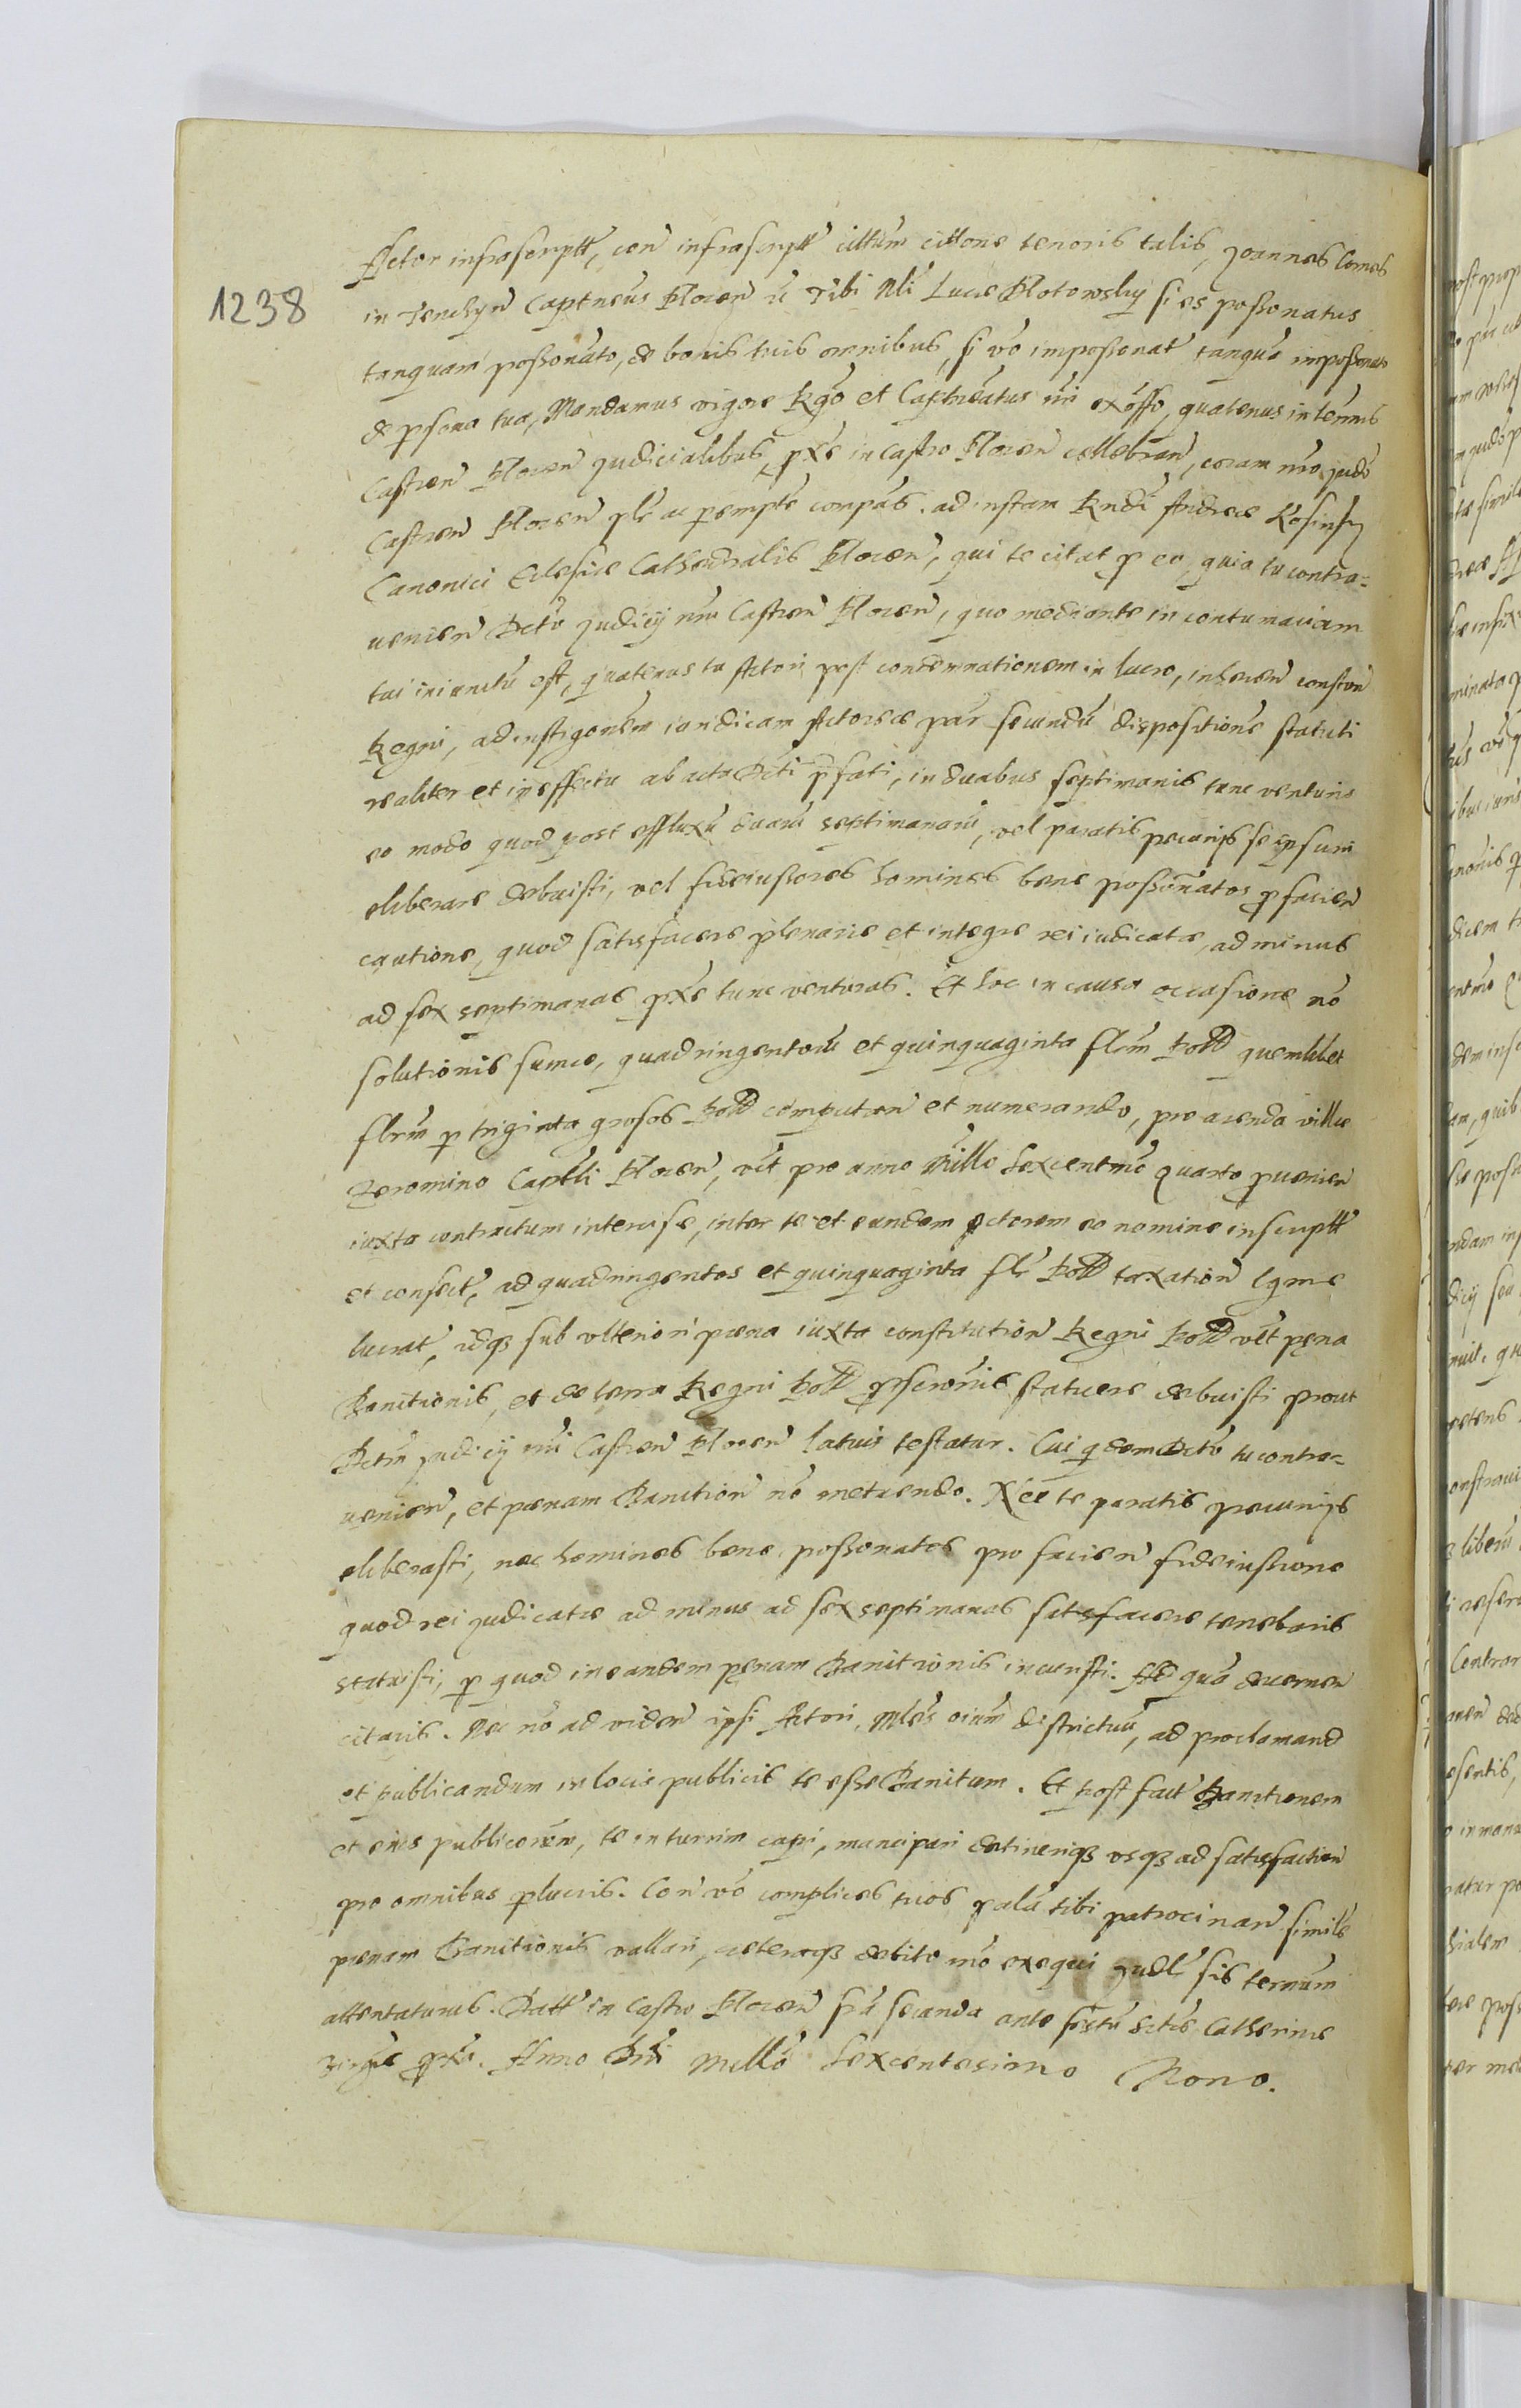 Actor infrascriptt, con infrascriptt cittum cittone tenoris talis, Joannes Comes
1238
in Tenchyn Captneus Plocen ū Tibi Nli Luce Plotowsky si es possonatus
tanquam possonato, de bonis tuis omnibus, si vo impossonat tanquā impossonato
de psona tua, Mandamus vigore Rgo et Captneatus nri exoffo, quatenus in termis
Castren Plocen Judicialibus, pxe in Castro Plocen cellebran, coram nro Judo
Castren Plocen plr ac pempte compās. ad instam Rndi Andreæ Kosinsky
Canonici Eclesiæ Cathedralis Plocen, qui te citat p eo, quia tu contra=
uenien Dcto Judicij nri Castren Plocen, quo mediante in contumaciam
tui iniunctū est, quatenus tu Actori post condemnationem in lucro, inheren conston
Regni, ad instigonem iuridicam Actoreæ par secundū dispositione statuti
realiter et in effectu ab acta Dcti pfati, in duabus septimanis tunc venturis
eo modo quod post effluxū duarū septimanarū, vel paratis pecunijs se ipsum
eliberare debuisti, vel fideiussores homines bene possonatos pfacien
cautione, quod satisfacere plenarie et integre rei iudicatæ, ad minus
ad sex septimanas pxe tunc venturas. Et hoc in causa occasione nō
solutionis sumæ, quadringentorū et quinquaginta flrm Poll quemlibet
flrm p triginta grosos Poll computan et numerando, pro arenda villæ
Zeromino Captli Plocen, vēt pro anno Millo Sexcentmo quarto puenien
iuxta contractum intercise, inter te et eundem actorem eo nomine inscriptt
et confect, ad quadringentos et quinquaginta flr Poll taxation lgme
lucrat, idq sub ulteriori pæna iuxta constitution Regni Poll vēt pęna
Banitionis, et de terra Regni Poll pscronis statuere debuisti prout
Dctm Judicij nri Castren Plocen latius testatur. Cui qdem Dcto tu contra=
uenien, et pænam Banition nō metuendo. Nec te paratis pecunijs
eliberasti, nec homines bene possonatos pro facien fideiussione
quod rei Judicatæ ad minus ad sex septimanas satisfacere tenebaris
statuisti, p quod in eandem pęnam Banitionis incuristi. Ad quā decernen
citaris. Nec nō ad viden ipsi Actori, Mlēs oium districtuū, ad proclamand
et publicandum in locis publicis te esse Banitum. Et post fact Banitionem
et eius publiconem, te in turrim capi, mancipari detineriq usq ad satisfaction
pro omnibus plucris. Con vo complices tuos palā tibi patrocinan simile
pænam Banitionis vallari, ceteraq debito mō exequi Judlr sis termum
attentaturus. Datt in Castro Plocen fria secunda ante festū Sctæ Catherinæ
virgīs pxe. Anno Dni Millō Sexcentesimo Nono.